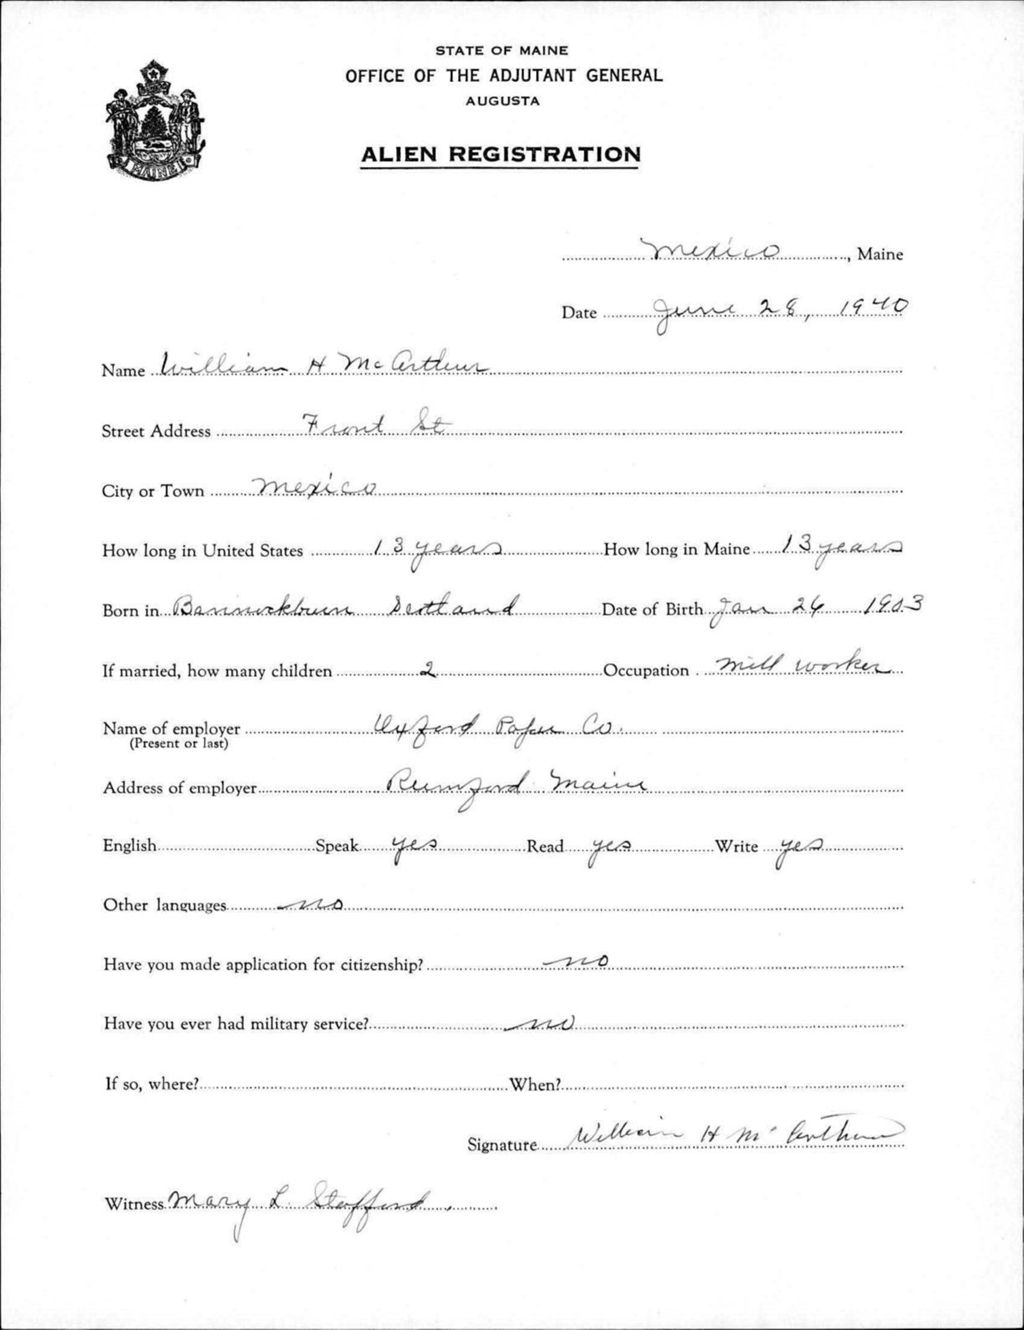 STATE OF MAINE
OFFICE OF THE ADJUTANT GENERAL
AUGUSTA
ALIEN REGISTRATION
MAINE
Mexico, Maine
Date June 28, 1940
Name William H McArthur
Street Address Front St
City or Town Mexico
How long in United States 13 years How long in Maine 13 years
Born in Bannockburn Scotland Date of Birth Jan 26 1903
If married, how many children 2 Occupation Mill worker
Name of employer Oxford Paper Co.
(Present or last)
Address of employer Rumford Maine
English Speak yes Read yes Write yes
Other languages no
Have you made application for citizenship? no
Have you ever had military service? no
If so, where? When?
Signature William H McArthur
Witness Mary L. Stafford